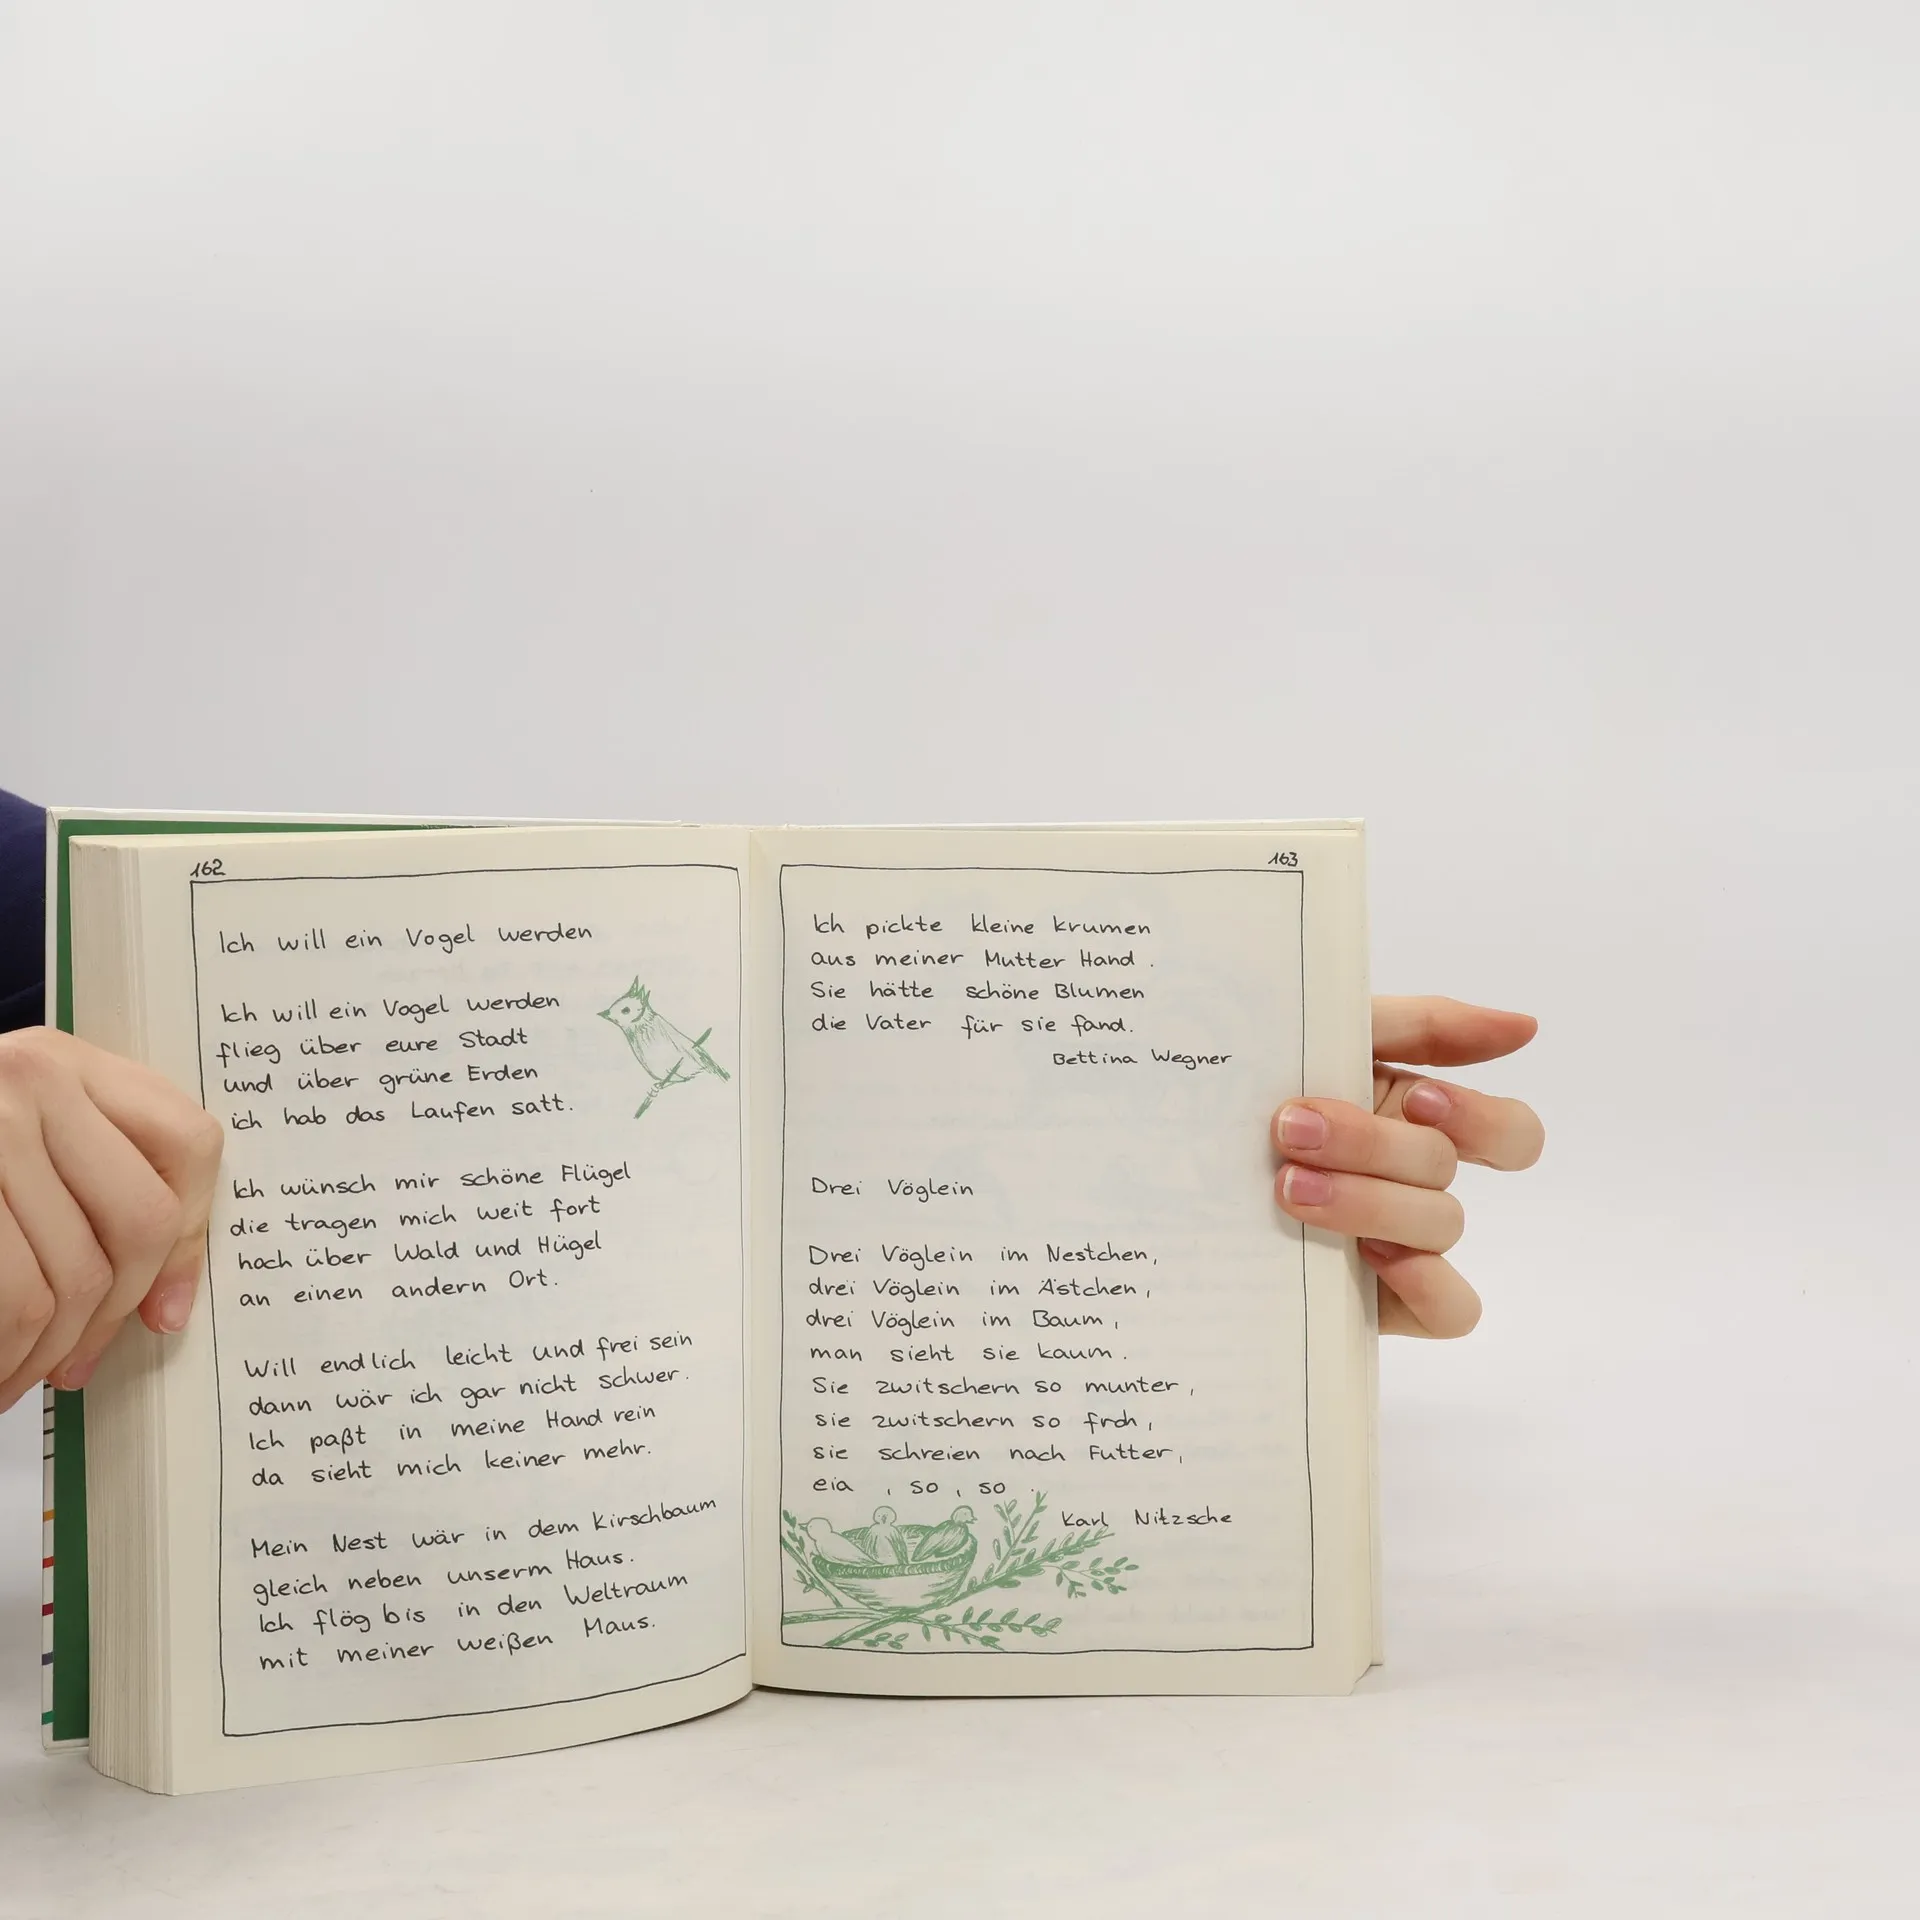 162
Ich will ein Vogel werden
Ich will ein Vogel werden
flieg über eure Stadt
und über grüne Erden
ich hab das Laufen satt.
Ich wünsch mir schöne Flügel
die tragen mich weit fort
hoch über Wald und Hügel
an einen andern Ort.
Will endlich leicht und frei sein
dann wär ich gar nicht schwer.
Ich paßt in meine Hand rein
da sieht mich keiner mehr.
Mein Nest wär in dem Kirschbaum
gleich neben unserm Haus.
Ich flög bis in den Weltraum
mit meiner weißen Maus.
163
Ich pickte kleine Krumen
aus meiner Mutter Hand.
Sie hätte schöne Blumen
die Vater für sie fand.
Bettina Wegner
Drei Vöglein
Drei Vöglein im Nestchen,
drei Vöglein im Ästchen,
drei Vöglein im Baum,
man sieht sie kaum.
Sie zwitschern so munter,
sie zwitschern so froh,
sie schreien nach Futter,
eia, so, so.
Karl Nitzsche